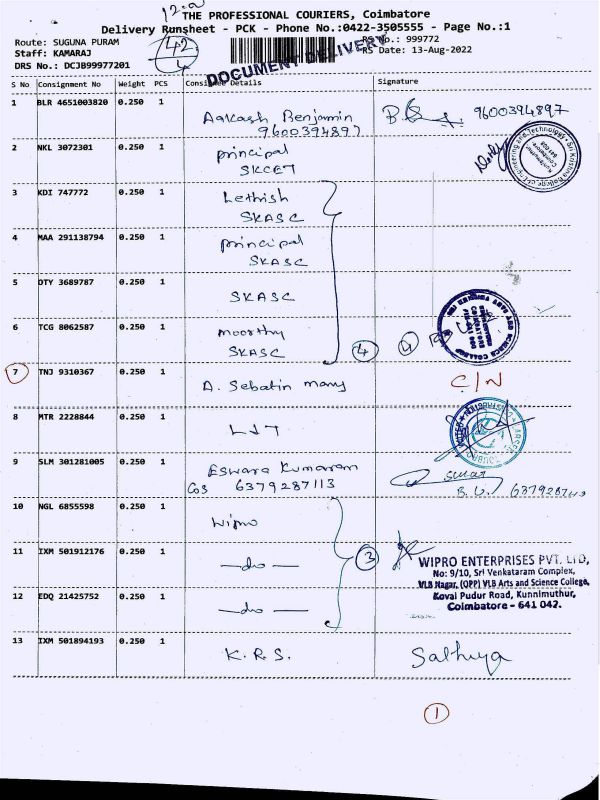 12.00
THE PROFESSIONAL COURIERS, Coimbatore
Delivery Runsheet - PCK - Phone No.:0422-3505555 - Page No.:1
Route: SUGUNA PURAM
42
RS No.: 999772
Staff: KAMARAJ
4
RS Date: 13-Aug-2022
DRS No.: DCJB99977201
DOCUMENT DELIVERY
S No Consignment No Weight PCS Consignee Details Signature
1 BLR 4651003820 0.250 1 Aakash Benjamin 9600394897
9600394897
2 NKL 3072301 0.250 1 principal
SKCET
3 KDI 747772 0.250 1 Lethish
SKASC
4 MAA 291138794 0.250 1 principal
SKASC
5 OTY 3689787 0.250 1 SKASC
6 TCG 8062587 0.250 1 moorthy
SKASC 4 4
7 TNJ 9310367 0.250 1 A. Sebatin mary C/N
8 MTR 2228844 0.250 1 LJT
9 SLM 301281005 0.250 1 Eswara Kumaran
Cos 6379287113
10 NGL 6855598 0.250 1 wipro
11 IXM 501912176 0.250 1 —do— 3
WIPRO ENTERPRISES PVT. LTD,
No: 9/10, Sri Venkataram Complex,
VLB Nagar, (OPP) VLB Arts and Science College,
12 EDQ 21425752 0.250 1 —do— Kovai Pudur Road, Kunnimuthur,
Coimbatore - 641 042.
13 IXM 501894193 0.250 1 K.R.S. Sathiya
1